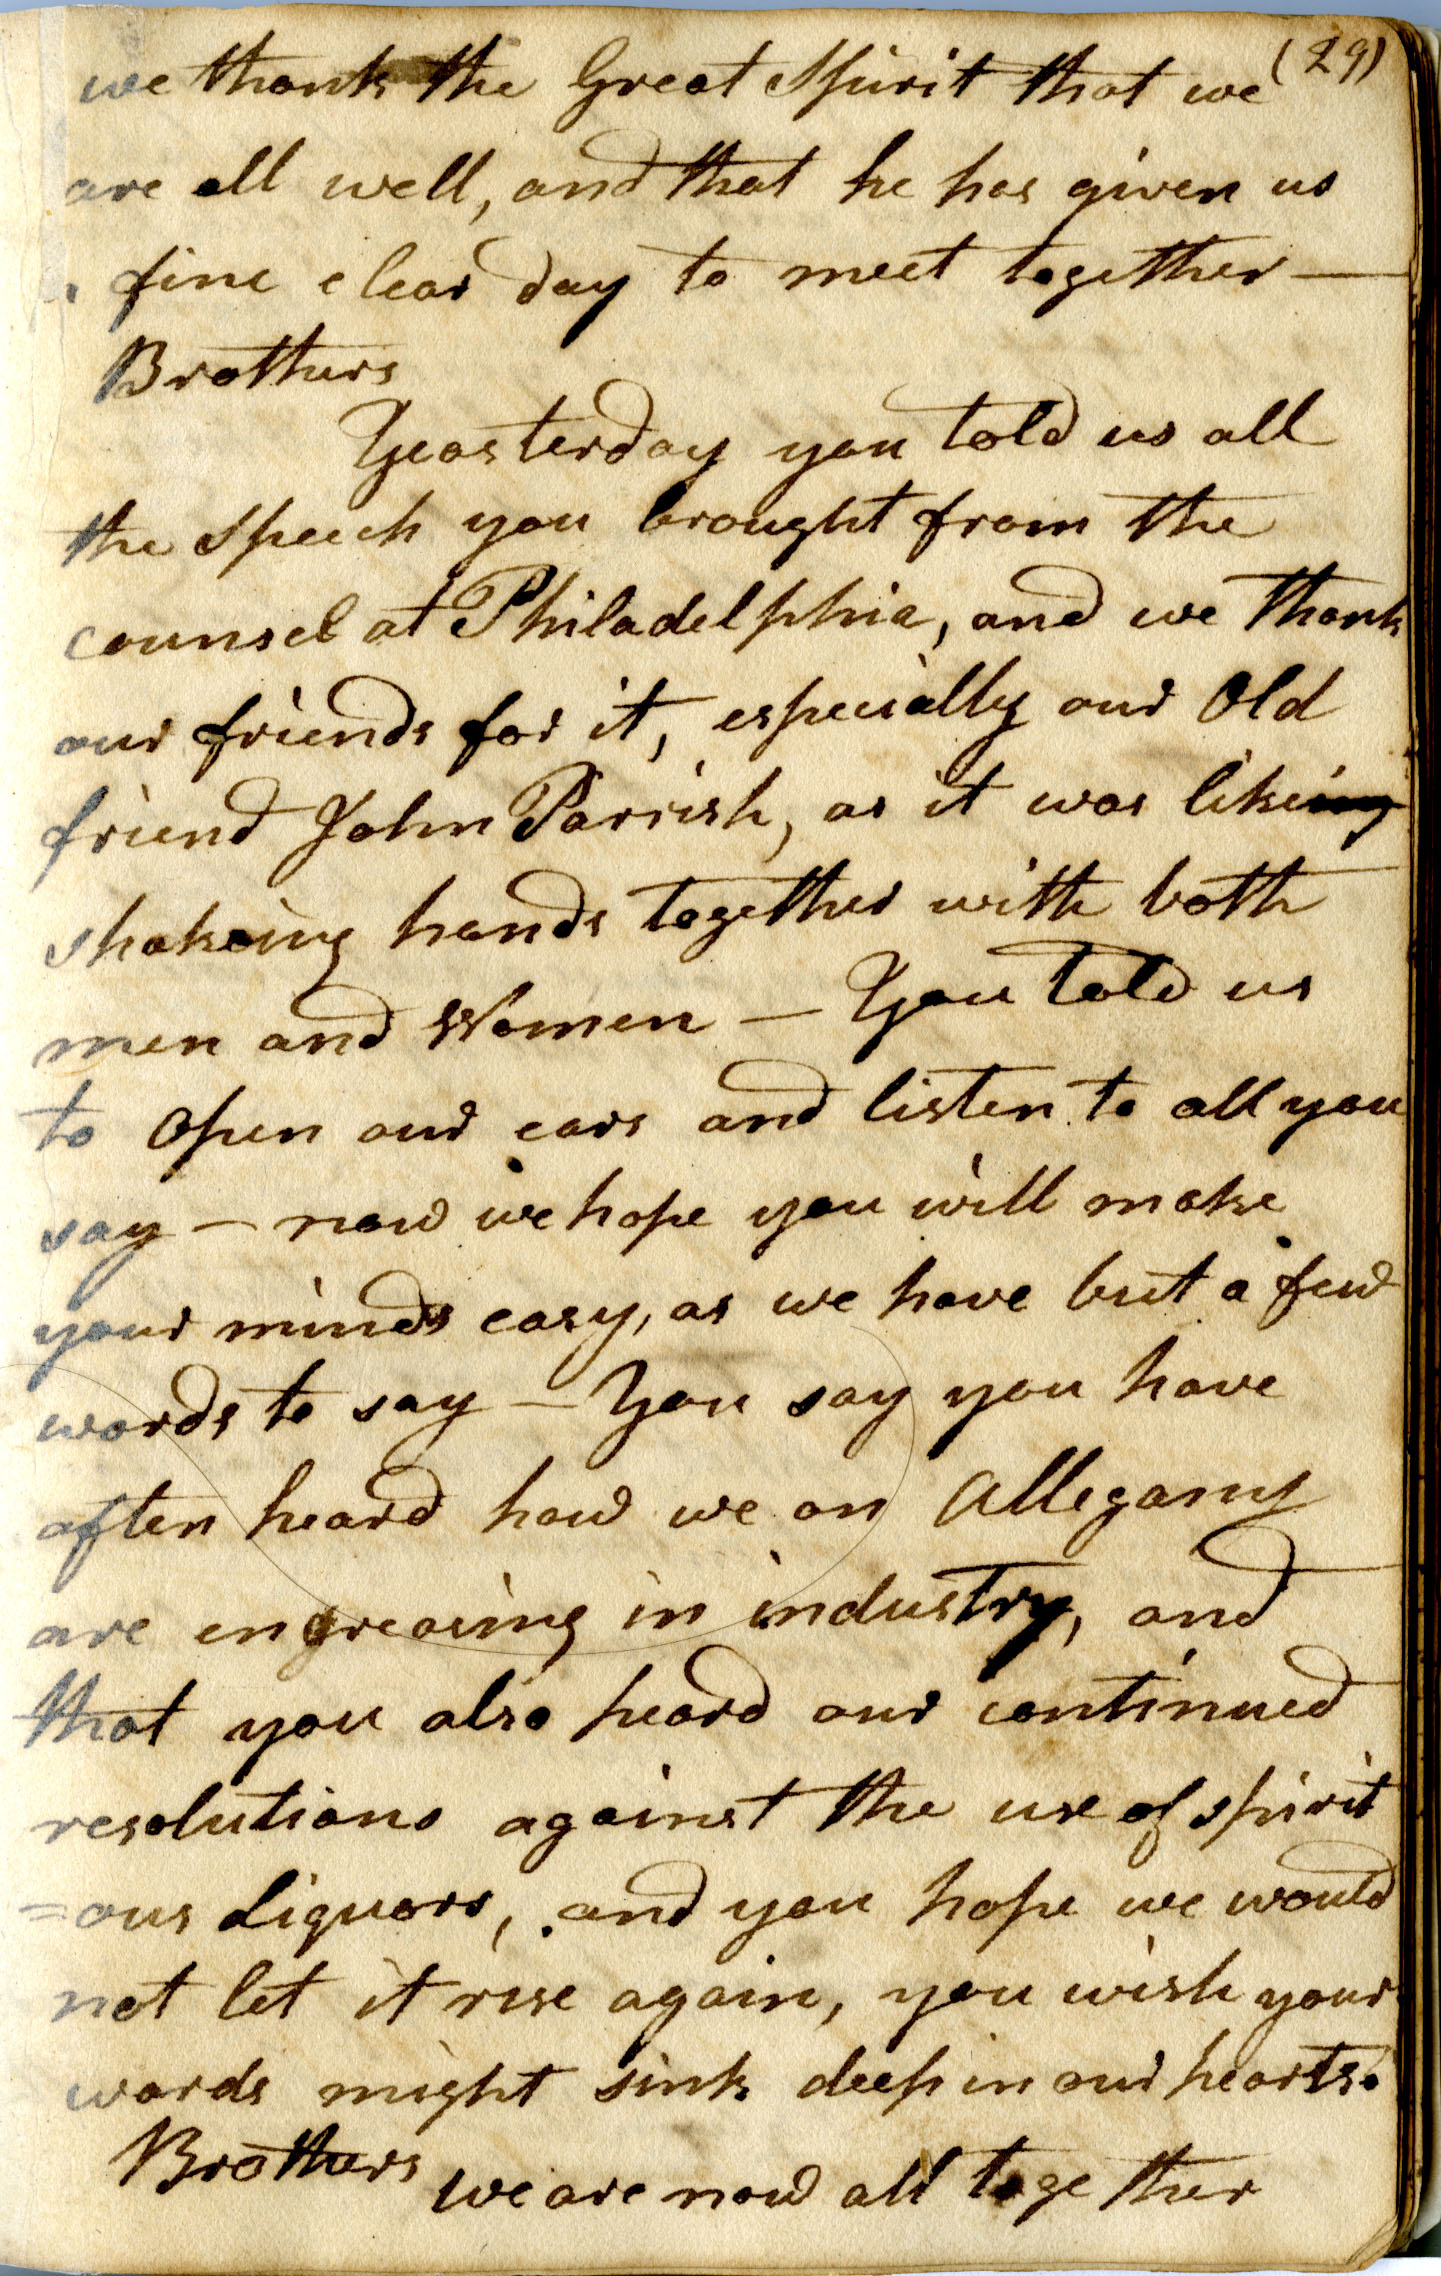 (29)
we thank the Great Spirit that we
are all well, and that he has given us
a fine clear day to meet together —
Brothers
Yeasterday you told us all
the speech you brought from the
counsel at Philadelphia, and we thank
our friends for it, especially our Old
friend John Parrish, as it was likeing
shakeing hands together with both
men and Women — You told us
to open our ears and listen to all you
say — now we hope you will make
your minds easy, as we have but a few
words to say — You say you have
often heard how we on Allegany
are engreasing in industry, and
that you also heard our continued
resolutions against the use of spirit
=ous Liquors, and you hope we would
not let it rise again, you wish your
words might sink deep in our hearts.
Brothers we are now all together